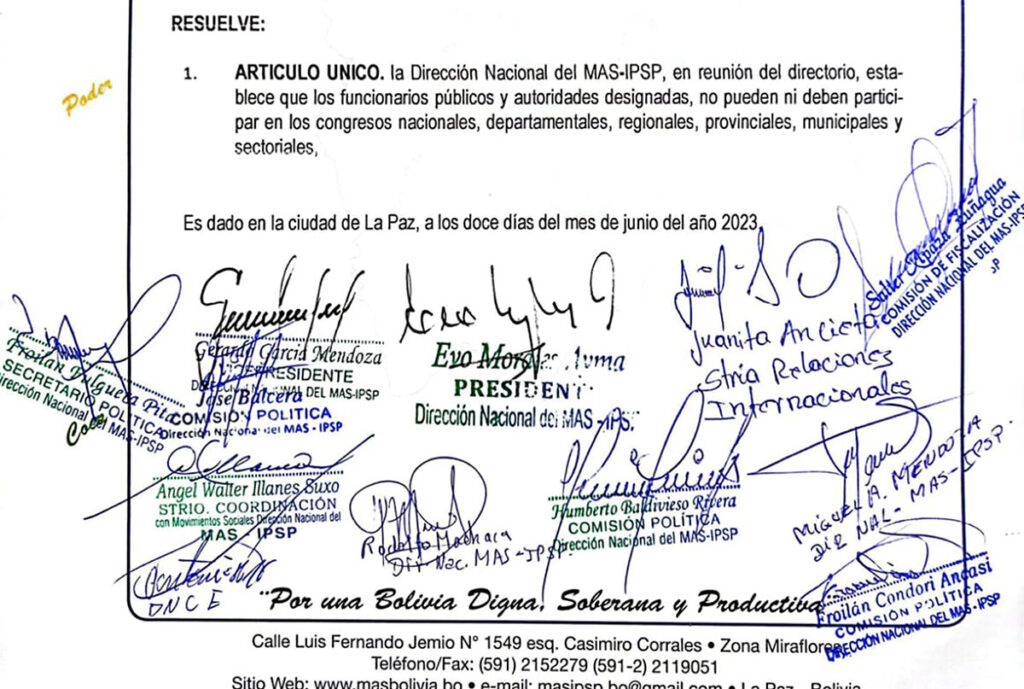 RESUELVE:
Poder
1. ARTICULO UNICO. la Dirección Nacional del MAS-IPSP, en reunión del directorio, esta-
blece que los funcionarios públicos y autoridades designadas, no pueden ni deben partici-
par en los congresos nacionales, departamentales, regionales, provinciales, municipales y
sectoriales,
Es dado en la ciudad de La Paz, a los doce días del mes de junio del año 2023,
COMISIÓN DE FISCALIZACIÓN
DIRECCIÓN NACIONAL DEL MAS-IPSP
Juanita Ancieta
Stria Relaciones
Internacionales
Gerardo García Mendoza
VICEPRESIDENTE
DEL MAS-IPSP
Evo Morales Ayma
PRESIDENT
Dirección Nacional del MAS - IPSP
Froilán Fulguera Pita
SECRETARIO POLITICA
Dirección Nacional del MAS-IPSP
José Balcera
COMISIÓN POLITICA
Dirección Nacional del MAS - IPSP
Angel Walter Illanes Suxo
STRIO. COORDINACIÓN
con Movimientos Sociales Dirección Nacional del
MAS - IPSP
Rodolfo Machaca
Dir. Nac. MAS-IPSP.
Humberto Baldivieso Rivera
COMISIÓN POLÍTICA
Dirección Nacional del MAS-IPSP
Miguel A. MENDOZA
DIR NAL-
MAS-IPSP.
DNCE
Froilán Condori Ancasi
COMISIÓN POLITICA
DIRECCIÓN NACIONAL DEL MAS-IPSP
"Por una Bolivia Digna, Soberana y Productiva
Calle Luis Fernando Jemio N° 1549 esq. Casimiro Corrales • Zona Miraflores
Teléfono/Fax: (591) 2152279 (591-2) 2119051
Sitio Web: www.masbolivia.bo • e-mail: masipsp.bo@gmail.com • La Paz - Bolivia